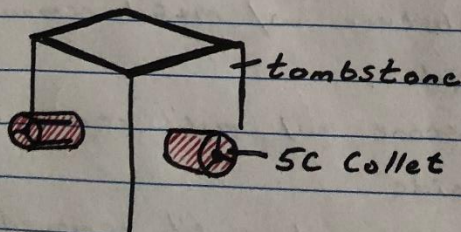 tombstone
5C Collet